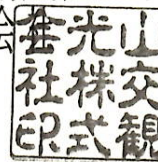 山交観
光株式
会社印
会